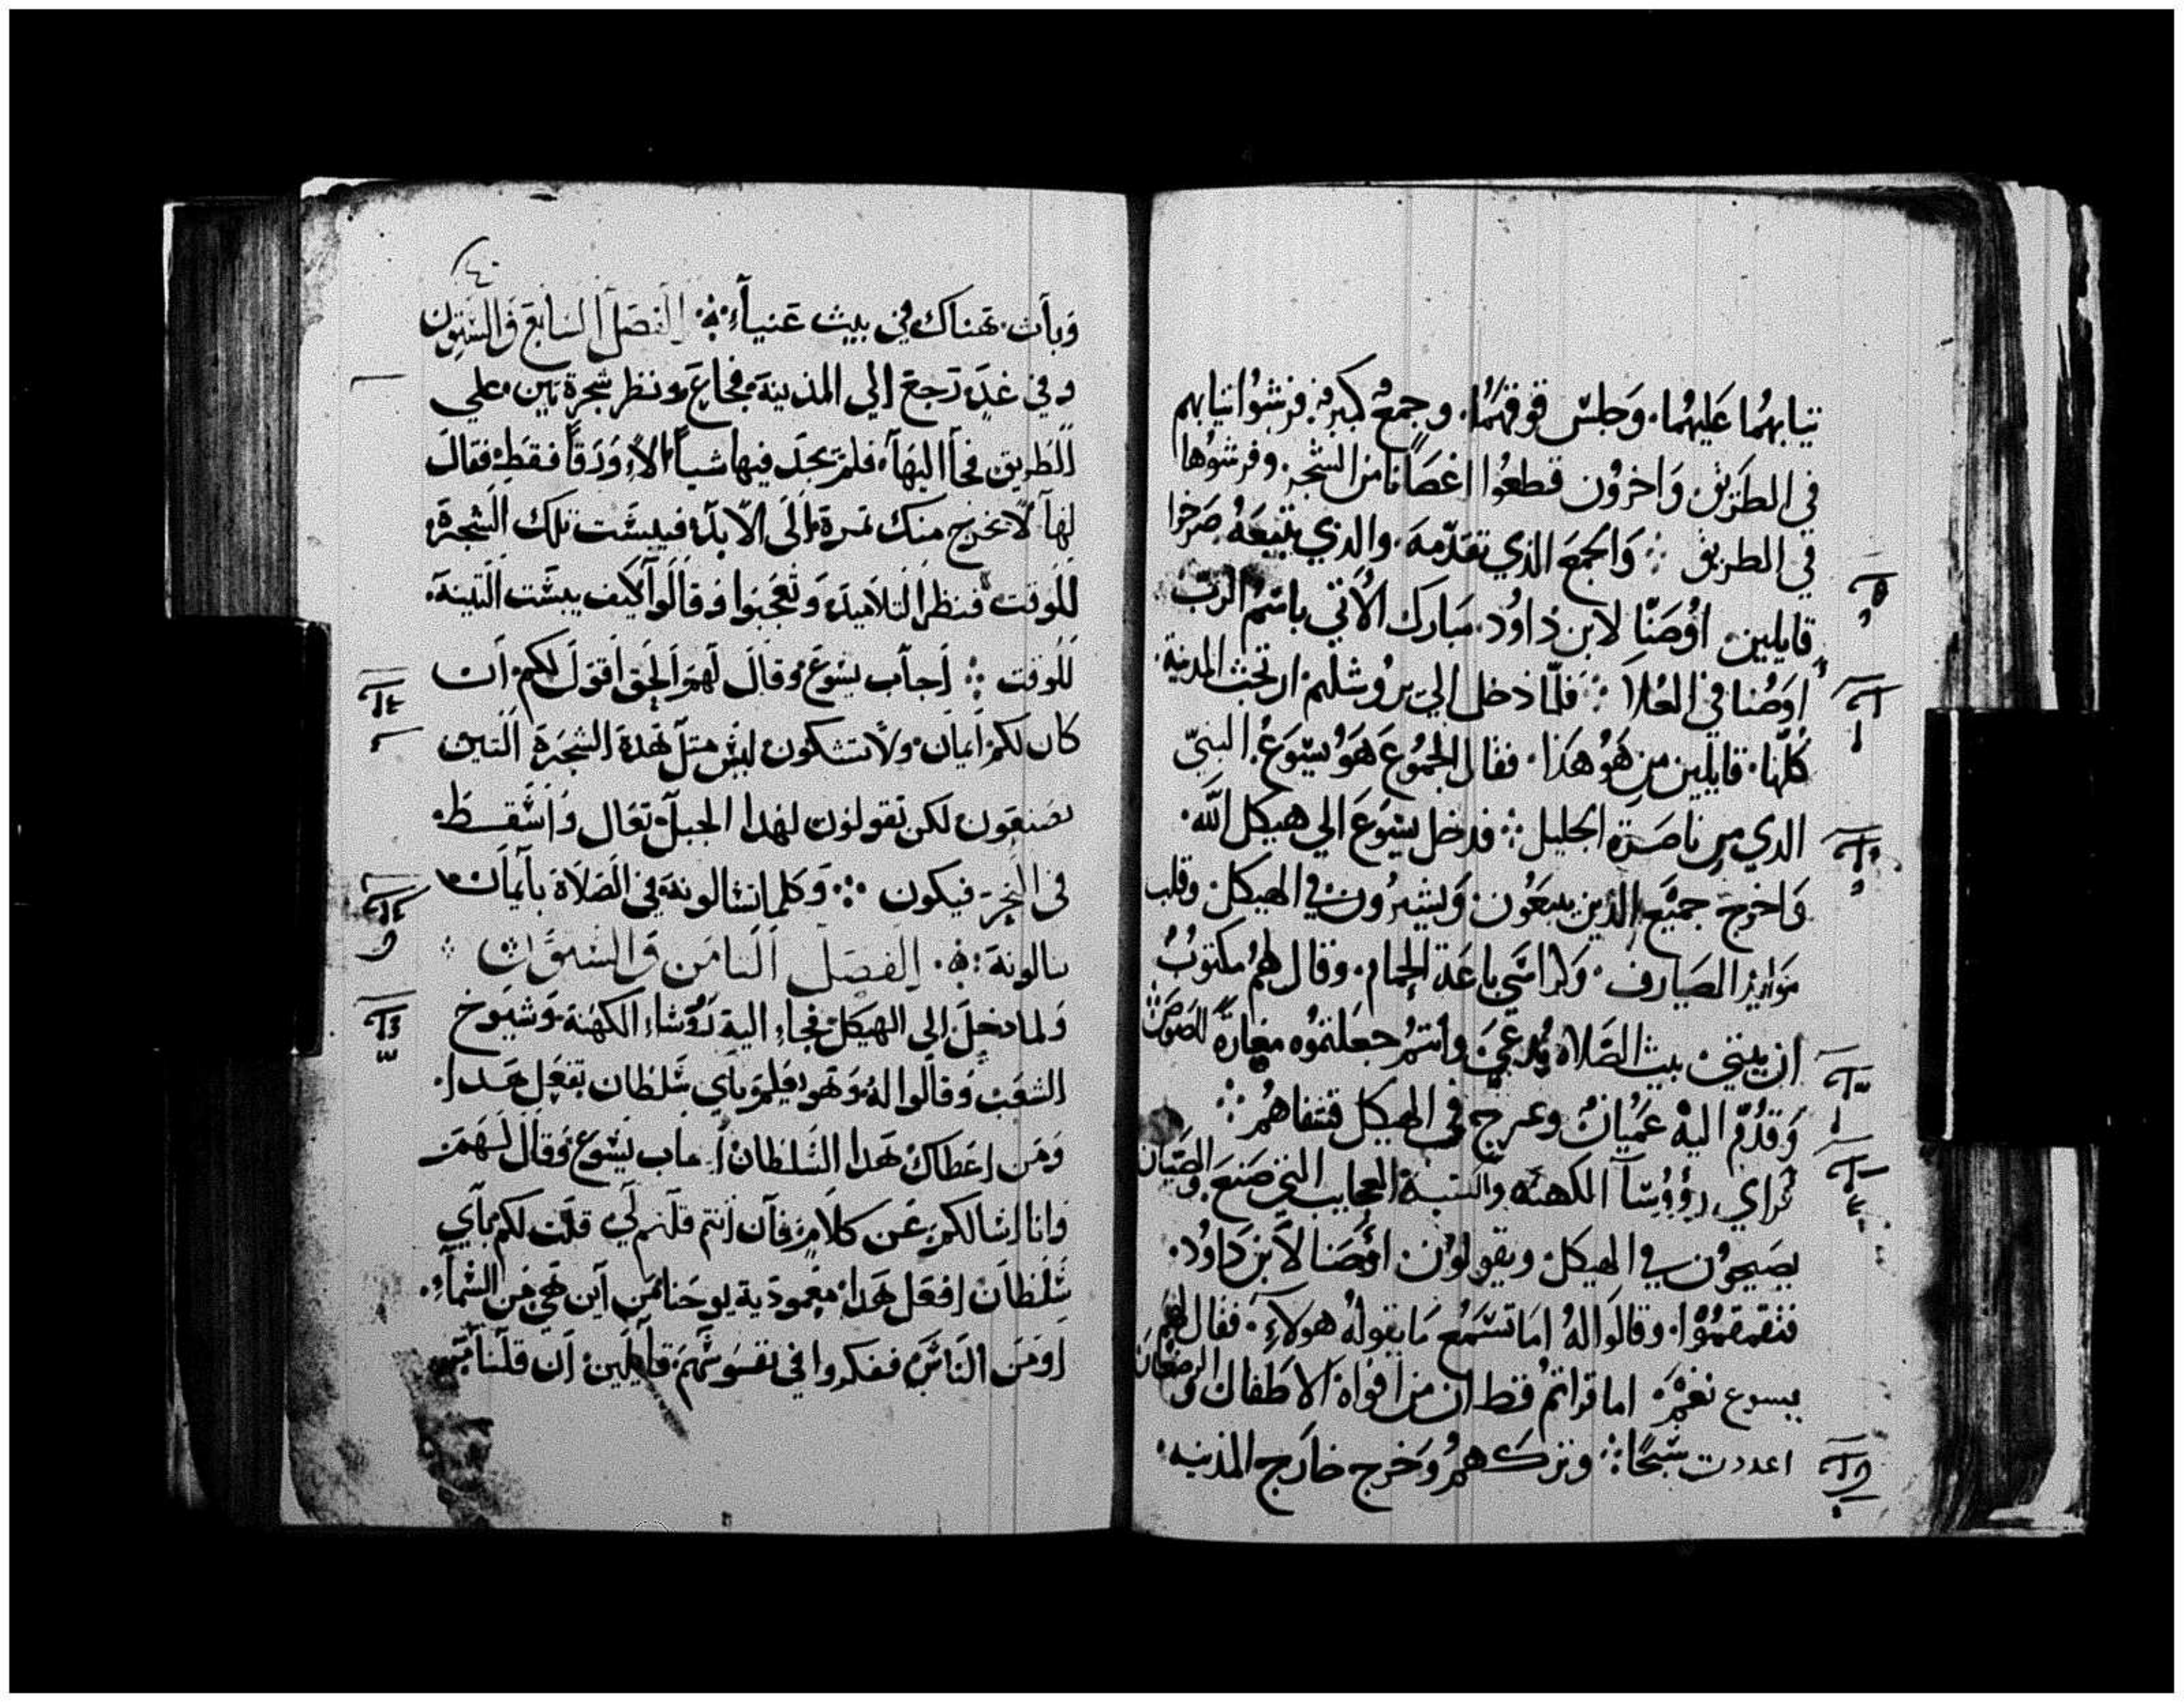 تيابهما عليهما. وجلس فوقهما. وجمع كبير فرشوا تيابهم
في الطريق واخرون قطعوا اغصانا من الشجر. وفرشوها
في الطريق ∴ والجمع الذي تقدمه. والذي يتبعه صرخوا
قايلين. اوصنا لابن داوود. مبارك الاتي باسم الرب
اوصنا في العلا ∴ فلما دخل الي يروشليم. ارتجت المدينة.
كلها. قايلين من هو هذا. فقال الجموع هو يسوع. النبي
الدي من ناصرة الجليل ∴ فدخل يسوع الي هيكل الله.
واخرج جميع الذين يبيعون. ويشترون في الهيكل. وقلب
موايد الصيارف. وكراسي باعة الحمام. وقال لهم مكتوب
ان بيتي. بيت الصلاه يدعي. وانتم جعلتموه مغارة للصوص
وقدم اليه عميان وعرج في الهيكل فشفاهم ∴
فراي رووسا الكهنه والكتبة العجايب التي صنع. والصبيان
يصيحون في الهيكل. ويقولون. اوصنا لابن داوود.
فتقمقموا. وقالوا له اما تسمع ما يقوله هولاء. فقال لهم
يسوع نعم. اما قراتم قط ان من افواه الاطفال والرضعان
اعددت سبحا ∴ وتركهم وخرج خارج المدينه.
٤٠
وبات. هناك في بيت عنيا. الفصل السابع والستون
وفي غد رجع الي المدينة. فجاع. ونظر شجرة تين. علي
الطريق فجا اليها. فلم يجد فيها شيا الا ورقا فقط. فقال
لها لا تخرج منك تمرة الي الابد. فيبست تلك الشجرة.
للوقت فنظر التلاميد. وتعجبوا وقالوا كيف يبست التينة.
للوقت ∴ اجاب يسوع وقال لهم الحق اقول لكم. ان
كان لكم ايمان. ولا تشكون ليس متل هدة الشجرة التين
تصنعون لكن تقولون لهدا الجبل تعال واسقط.
في البحر فيكون ∴ وكلما تسالونة في الصلاة بايمان
تنالونة. الفصل التامن والستون
ولما دخل الي الهيكل. فجاء الية رووساء الكهنة. وشيوخ
الشعب وقالوا له وهو يعلم باي سلطان تفعل هدا.
ومن اعطاك هدا السلطان اجاب يسوع وقال لهم
وانا اسالكم عن كلام. فان انتم قلتم لي قلت لكم باي
سلطان افعل هدا. معمودية يوحنا من اين هي من السماء.
او من الناس ففكروا في نفوسهم قايلين. ان قلنا من